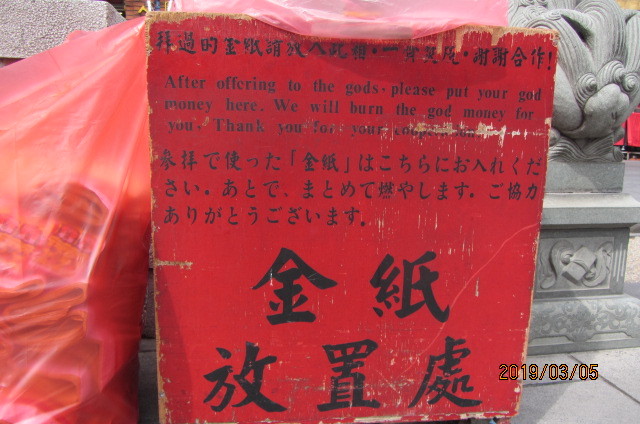 拜過的金紙請放入此箱，一齊焚化，謝謝合作!
After offering to the gods, please put your god
money here. We will burn the god money for
you. Thank you for your cooperation.
参拝で使った「金紙」はこちらにお入れくだ
さい。あとで、まとめて燃やします。ご協力
ありがとうございます。
金紙
放置處
2019/03/05